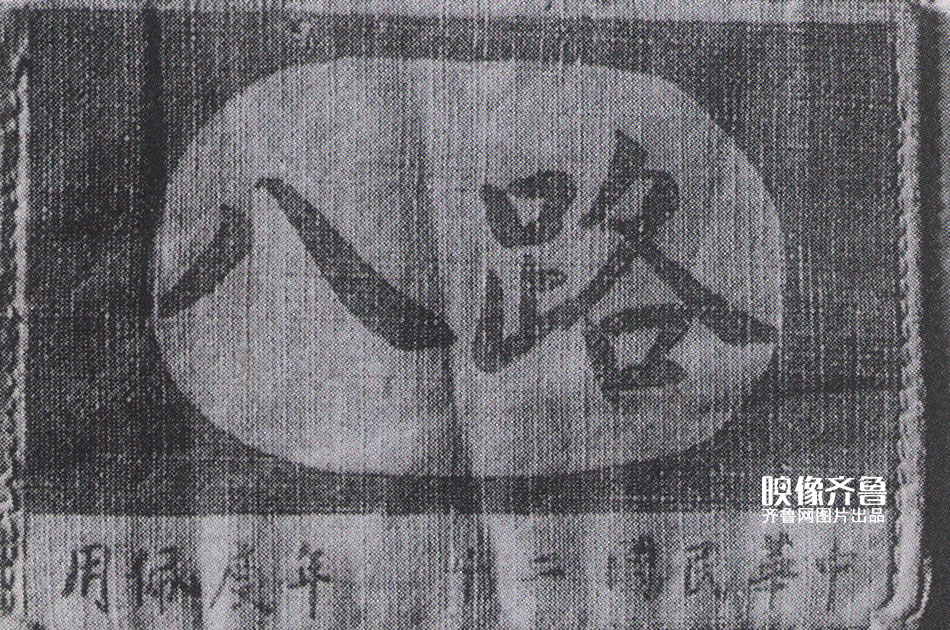 八路
中華民國二十年度佩用
映像齐鲁
齐鲁网图片出品